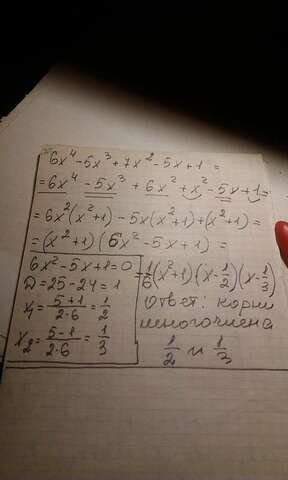 6x⁴-5x³+7x²-5x+1=
=6x⁴-5x³+6x²+x²-5x+1=
=6x²(x²+1)-5x(x²+1)+(x²+1)=
=(x²+1)(6x²-5x+1)=
6x²-5x+1=0
D=25-24=1
x₁=5+1/2·6=1/2
x₂=5-1/2·6=1/3
=1/6(x²+1)(x-1/2)(x-1/3)
Ответ: корни
многочлена
1/2 и 1/3